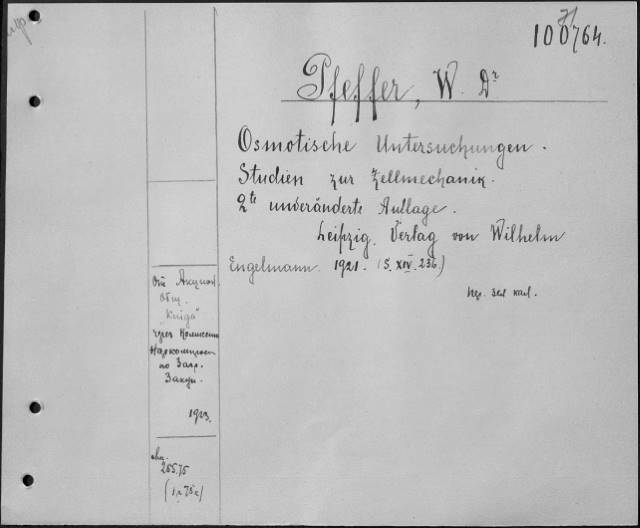 100764.
Pfeffer, W. Dr
Osmotische Untersuchungen.
Studien zur Zellmechanik.
2te unveränderte Auflage.
Leipzig. Verlag von Wilhelm
Engelmann. 1921. (S. XIV. 236)
От Акцион.
Общ.
"Kniga"
через Комиссию
Наркомпроса
по Загр.
Закуп.
1923.
255.75